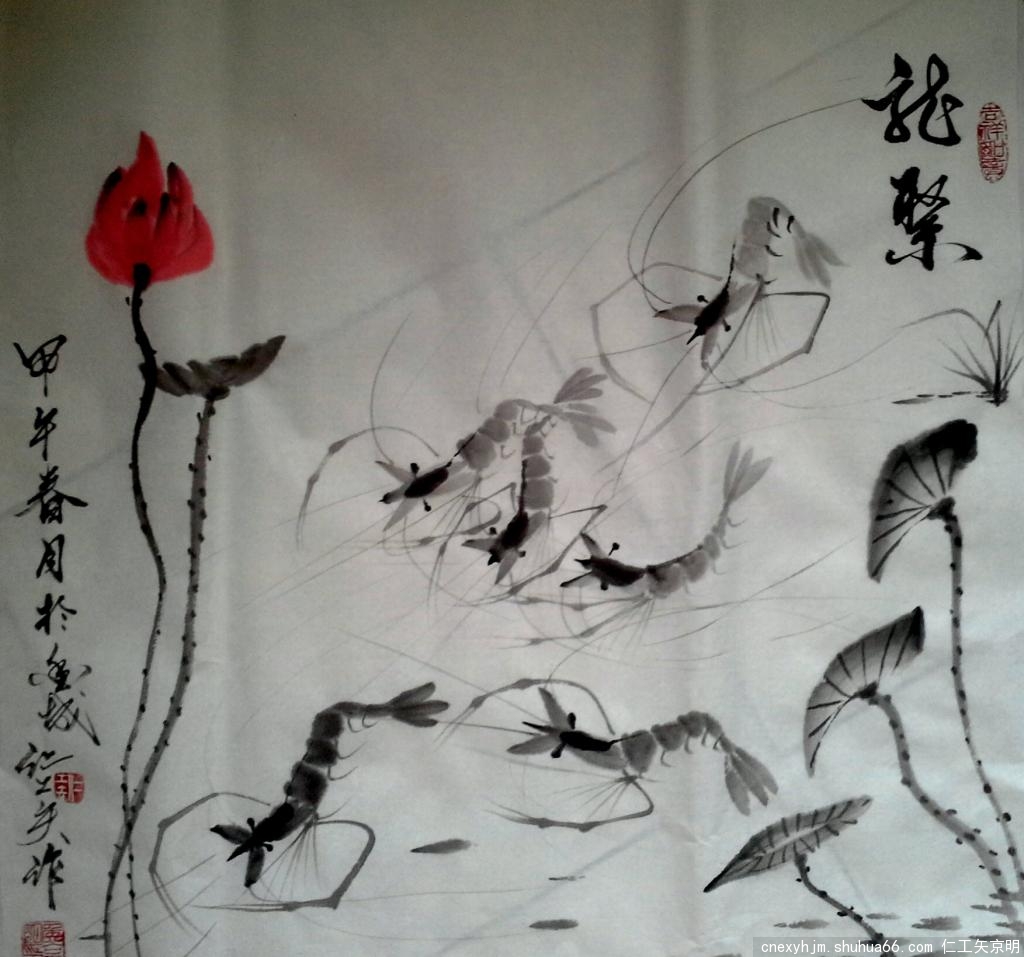 龍聚
吉祥如意
甲午春月於城仁工矢作
cnexyhjm.shuhua66.com 仁工矢京明